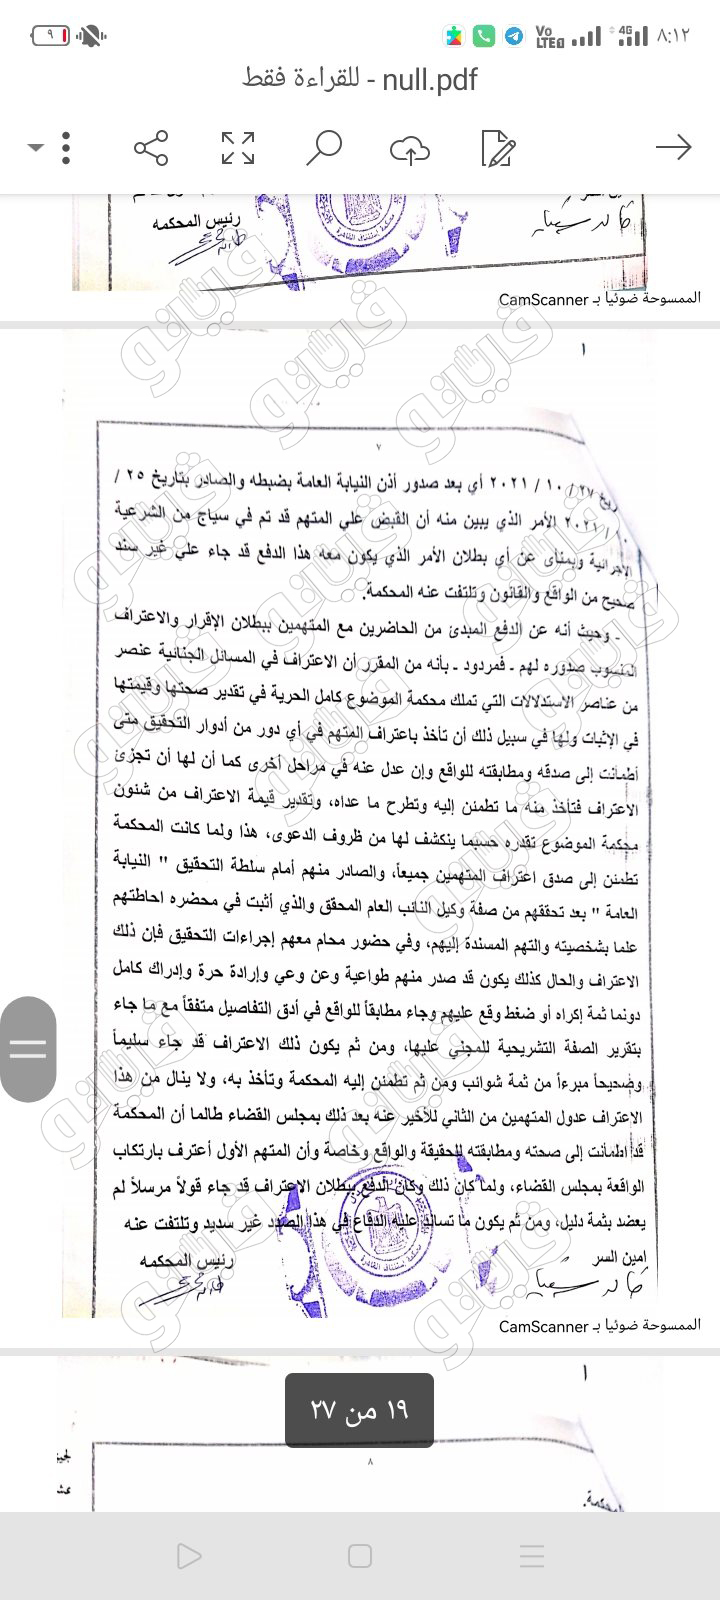 ٩
Vo LTE 4G ٨:١٢
null.pdf - للقراءة فقط
رئيس المحكمه
الممسوحة ضوئيا بـ CamScanner
١
٧
٢٧ / ١٠ / ٢٠٢١ أي بعد صدور أذن النيابة العامة بضبطه والصادر بتاريخ ٢٥ /
٢٠٢١ الأمر الذي يبين منه أن القبض علي المتهم قد تم في سياج من الشرعية
الاجرائية وبمنأى عن أي بطلان الأمر الذي يكون معه هذا الدفع قد جاء علي غير سند
صحيح من الواقع والقانون وتلتفت عنه المحكمة.
- وحيث أنه عن الدفع المبدئ من الحاضرين مع المتهمين ببطلان الإقرار والاعتراف
المنسوب صدوره لهم - فمردود - بأنه من المقرر أن الاعتراف في المسائل الجنائية عنصر
من عناصر الاستدلالات التي تملك محكمة الموضوع كامل الحرية في تقدير صحتها وقيمتها
في الإثبات ولها في سبيل ذلك أن تأخذ باعتراف المتهم في أي دور من أدوار التحقيق متى
أطمأنت إلى صدقه ومطابقته للواقع وإن عدل عنه في مراحل أخرى كما أن لها أن تجزئ
الاعتراف فتأخذ منه ما تطمئن إليه وتطرح ما عداه، وتقدير قيمة الاعتراف من شئون
محكمة الموضوع تقدره حسبما ينكشف لها من ظروف الدعوى، هذا ولما كانت المحكمة
تطمئن إلى صدق اعتراف المتهمين جميعاً، والصادر منهم أمام سلطة التحقيق " النيابة
العامة " بعد تحققهم من صفة وكيل النائب العام المحقق والذي أثبت في محضره احاطتهم
علما بشخصيته والتهم المسندة إليهم، وفي حضور محام معهم إجراءات التحقيق فإن ذلك
الاعتراف والحال كذلك يكون قد صدر منهم طواعية وعن وعي وإرادة حرة وإدراك كامل
دونما ثمة إكراه أو ضغط وقع عليهم وجاء مطابقاً للواقع في أدق التفاصيل متفقاً مع ما جاء
بتقرير الصفة التشريحية للمجني عليها، ومن ثم يكون ذلك الاعتراف قد جاء سليماً
وصحيحاً مبرءاً من ثمة شوائب ومن ثم تطمئن إليه المحكمة وتأخذ به، ولا ينال من هذا
الاعتراف عدول المتهمين من الثاني للأخير عنه بعد ذلك بمجلس القضاء طالما أن المحكمة
قد اطمأنت إلى صحته ومطابقته للحقيقة والواقع وخاصة وأن المتهم الأول أعترف بارتكاب
الواقعة بمجلس القضاء، ولما كان ذلك وكان الدفع ببطلان الاعتراف قد جاء قولاً مرسلاً لم
يعضد بثمة دليل، ومن ثم يكون ما تساند عليه الدفاع في هذا الصدد غير سديد وتلتفت عنه
امين السر
رئيس المحكمه
الممسوحة ضوئيا بـ CamScanner
١٩ من ٢٧
١
٨
فيتو